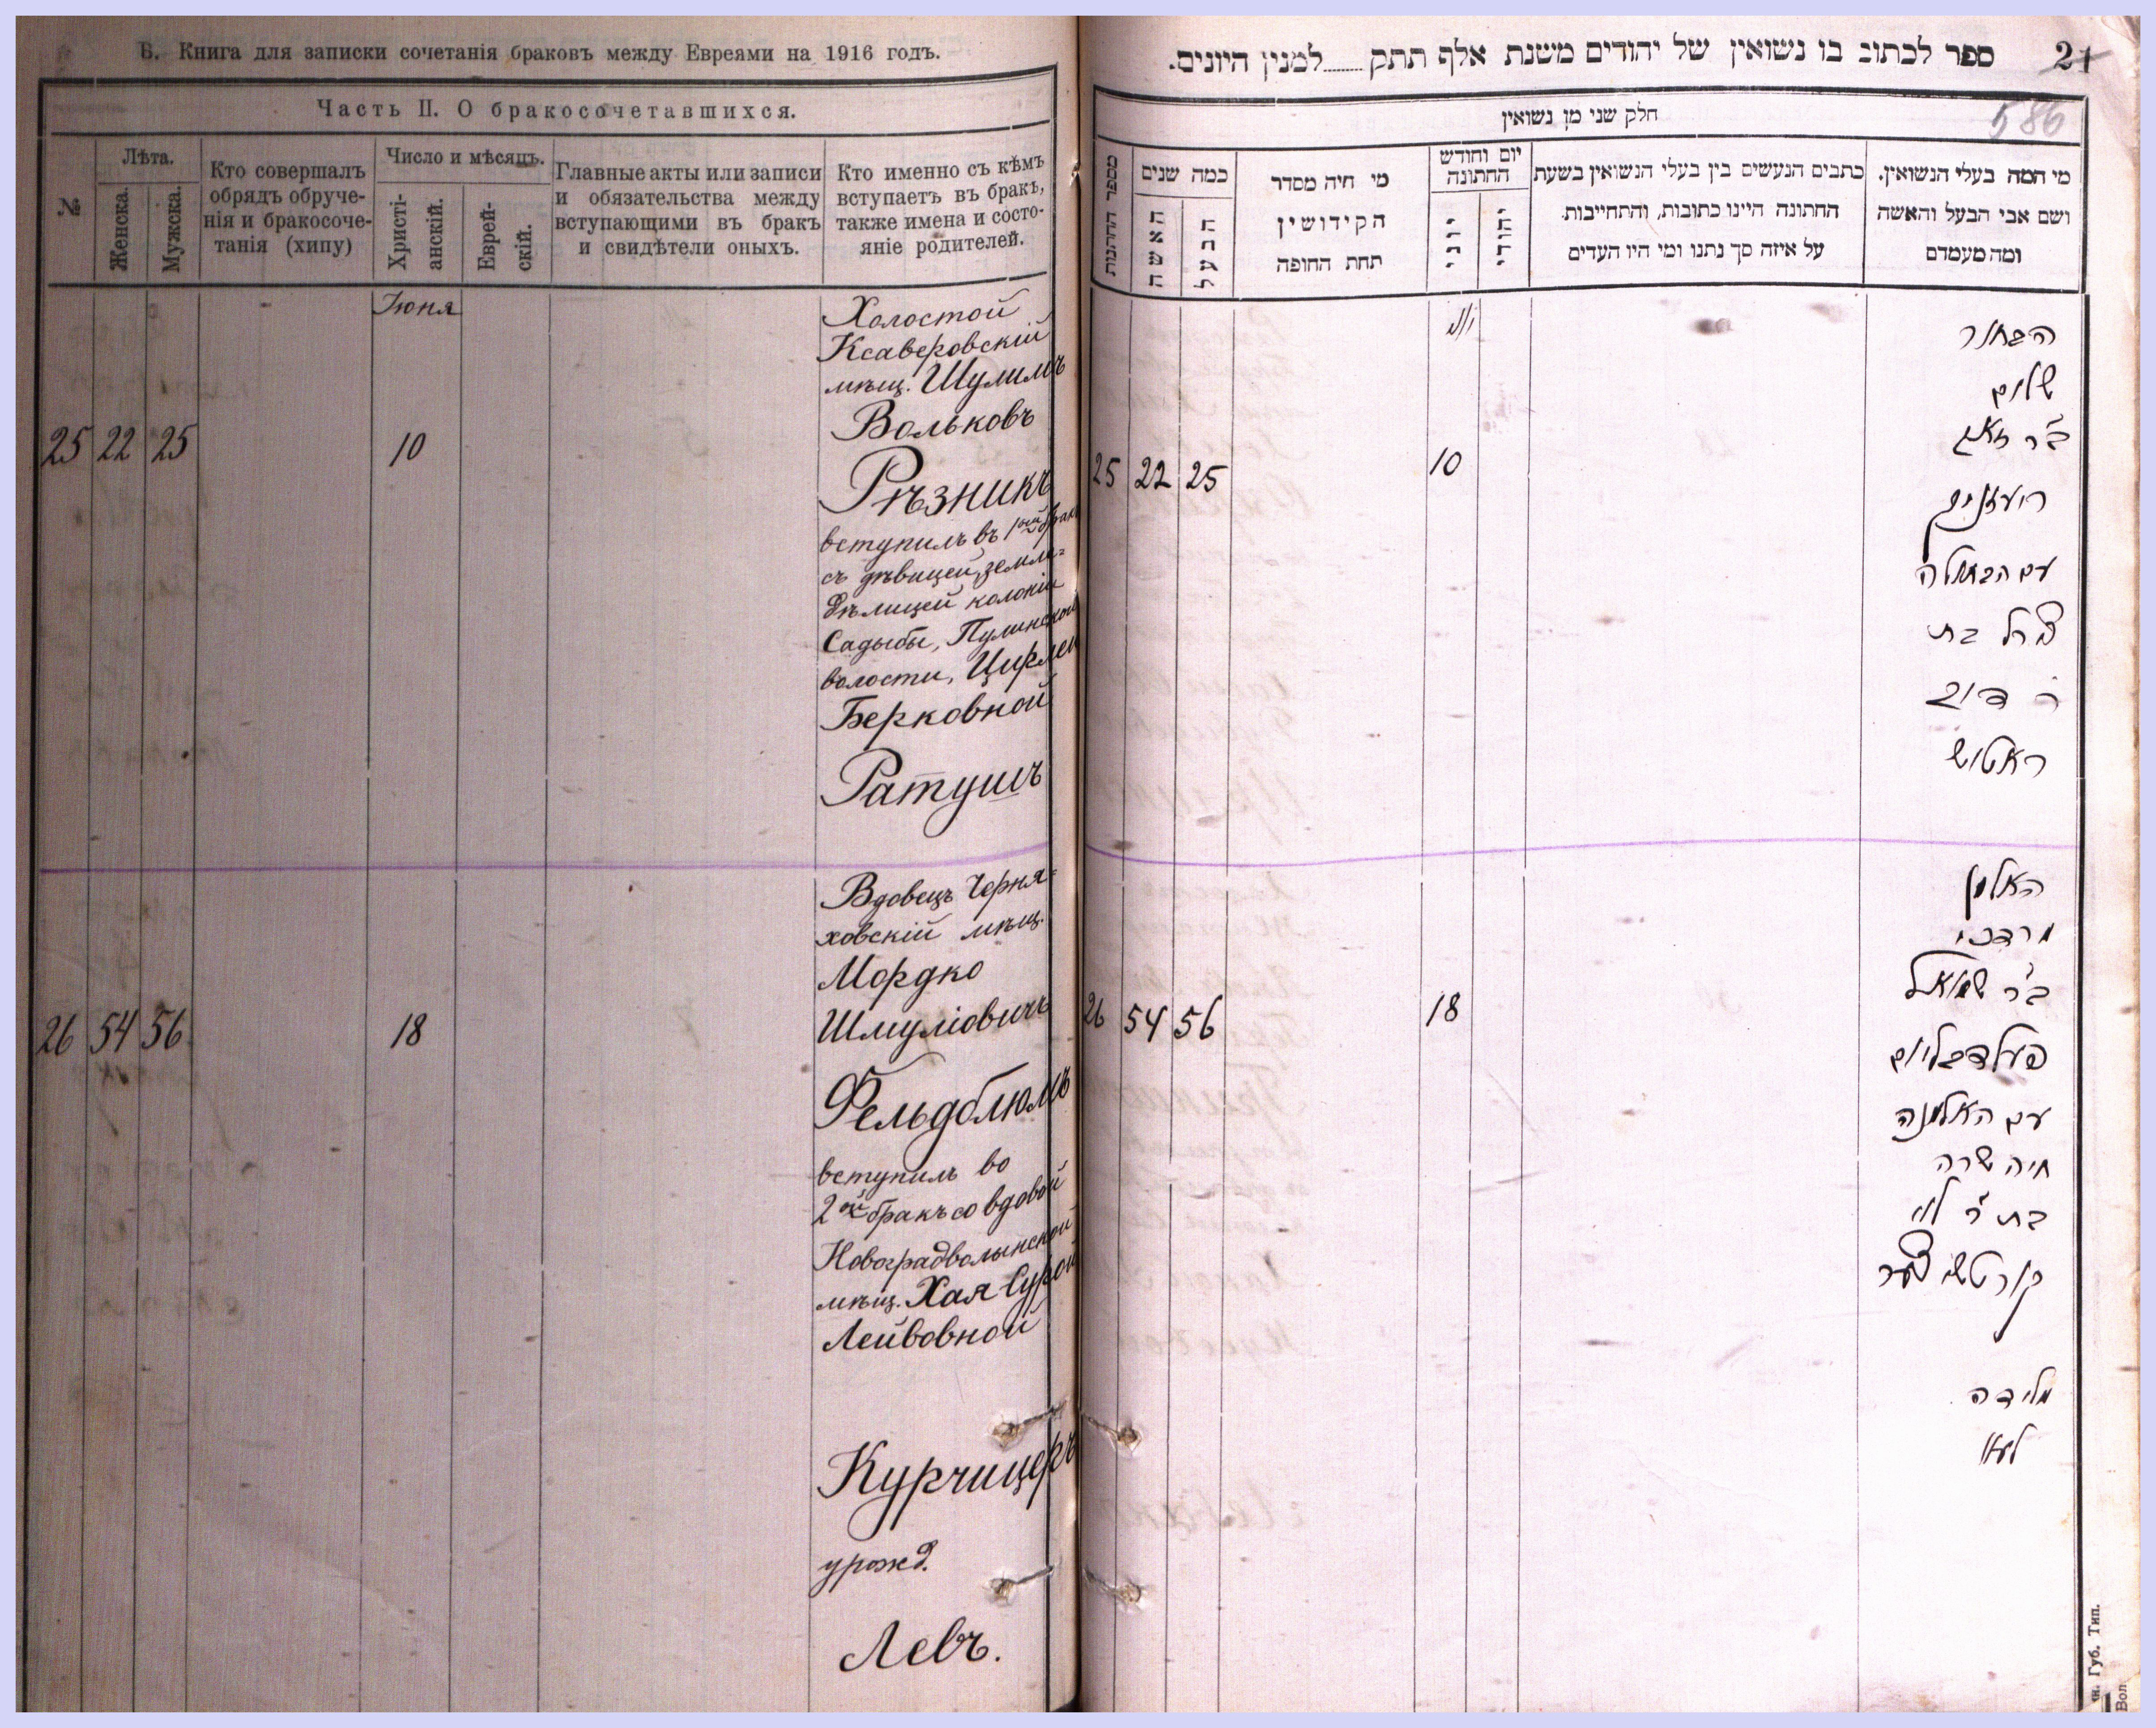 Б. Книга для записки сочетанія браковъ между Евреями на 1916 годъ.
Часть II. О бракосочетавшихся.
№
Лѣта.
Женска.
Мужска.
Кто совершалъ
обрядъ обруче-
нія и бракосоче-
танія (хипу)
Число и мѣсяцъ.
Христі-
анскій.
Еврей-
скій.
Главные акты или записи
и обязательства между
вступающими въ бракъ
и свидѣтели оныхъ.
Кто именно съ кѣмъ
вступаетъ въ бракъ,
также имена и состо-
яніе родителей.
Іюня
25 22 25 10
Холостой
Ксаверовскій
мѣщ. Шулимъ
Вольковъ
Рѣзникъ
вступилъ въ 1ый бракъ
съ дѣвицей, земле-
дѣлицей колоніи
Садыбы, Пулинской
волости, Цирлей
Берковной
Ратушъ
26 54 56 18
Вдовецъ Черня-
ховскій мѣщ.
Мордко
Шмуліовичъ
Фельдблюмъ
вступилъ во
2ой бракъ со вдовой
Новоградволынской
мѣщ. Хая Сурой
Лейвовной
Курчицеръ
урожд.
Левъ.
ספר לכתוב בו נשואין של יהודים משנת אלף תתק........למנין היונים.
21
586
חלק שני מן נשואין
מספר החתונות
כמה שנים
האשה
הבעל
מי היה מסדר
הקידושין
תחת החופה
יום וחודש
החתונה
יוני
יהודי
כתבים הנעשים בין בעלי הנשואין בשעת
החתונה היינו כתובות, והתחייבות
על איזה סך נתנו ומי היו העדים
מי המה בעלי הנשואין,
ושם אבי הבעל והאשה
ומה מעמדם
25 22 25 10
הבחור
שלום
ב״ר זאב
רעזניק
עם הבתולה
צירל בת
ר׳ דוב
ראטוש
26 54 56 18
האלמן
מרדכי
ב״ר שמואל
פעלדבליום
עם האלמנה
חיה שרה
בת ר׳ לוי
קורטשיצער
מלידה
לעוו
ин. Губ. Тип.
Вол